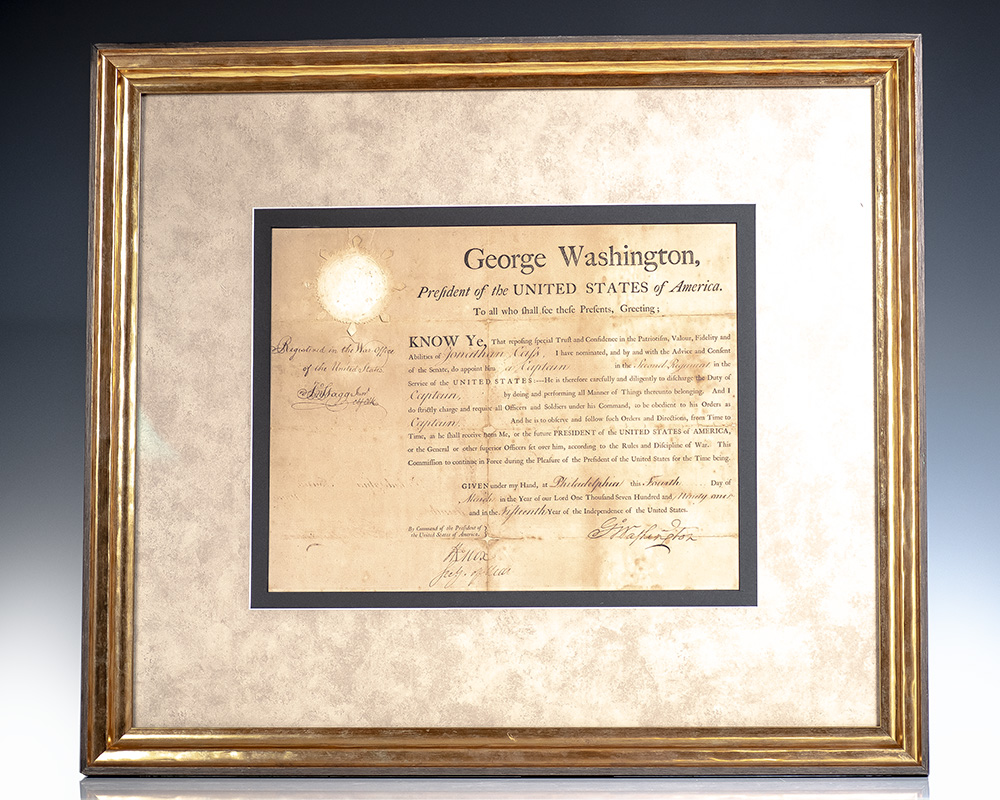 George Washington,
Preſident of the UNITED STATES of America.
To all who ſhall ſee theſe Preſents, Greeting;
Regiſtered in the War Office
of the United States
Jno Stagg Junr
KNOW YE, That repoſing ſpecial Truſt and Confidence in the Patriotiſm, Valour, Fidelity and
Abilities of Jonathan Caſs, I have nominated, and by and with the Advice and Conſent
of the Senate, do appoint him a Captain in the Second Regiment in the
Service of the UNITED STATES:—He is therefore carefully and diligently to diſcharge the Duty of
Captain, by doing and performing all Manner of Things thereunto belonging. And I
do ſtrictly charge and require all Officers and Soldiers under his Command, to be obedient to his Orders as
Captain. And he is to obſerve and follow ſuch Orders and Directions, from Time to
Time, as he ſhall receive from Me, or the future PRESIDENT of the UNITED STATES of AMERICA,
or the General or other ſuperior Officers ſet over him, according to the Rules and Diſcipline of War. This
Commiſſion to continue in Force during the Pleaſure of the Preſident of the United States for the Time being.
GIVEN under my Hand, at Philadelphia this Fourth Day of
March in the Year of our Lord One Thouſand Seven Hundred and Ninety one
and in the Fifteenth Year of the Independence of the United States.
By Command of the Preſident of
the United States of America,
Go Washington
HKnox
Secy. of War